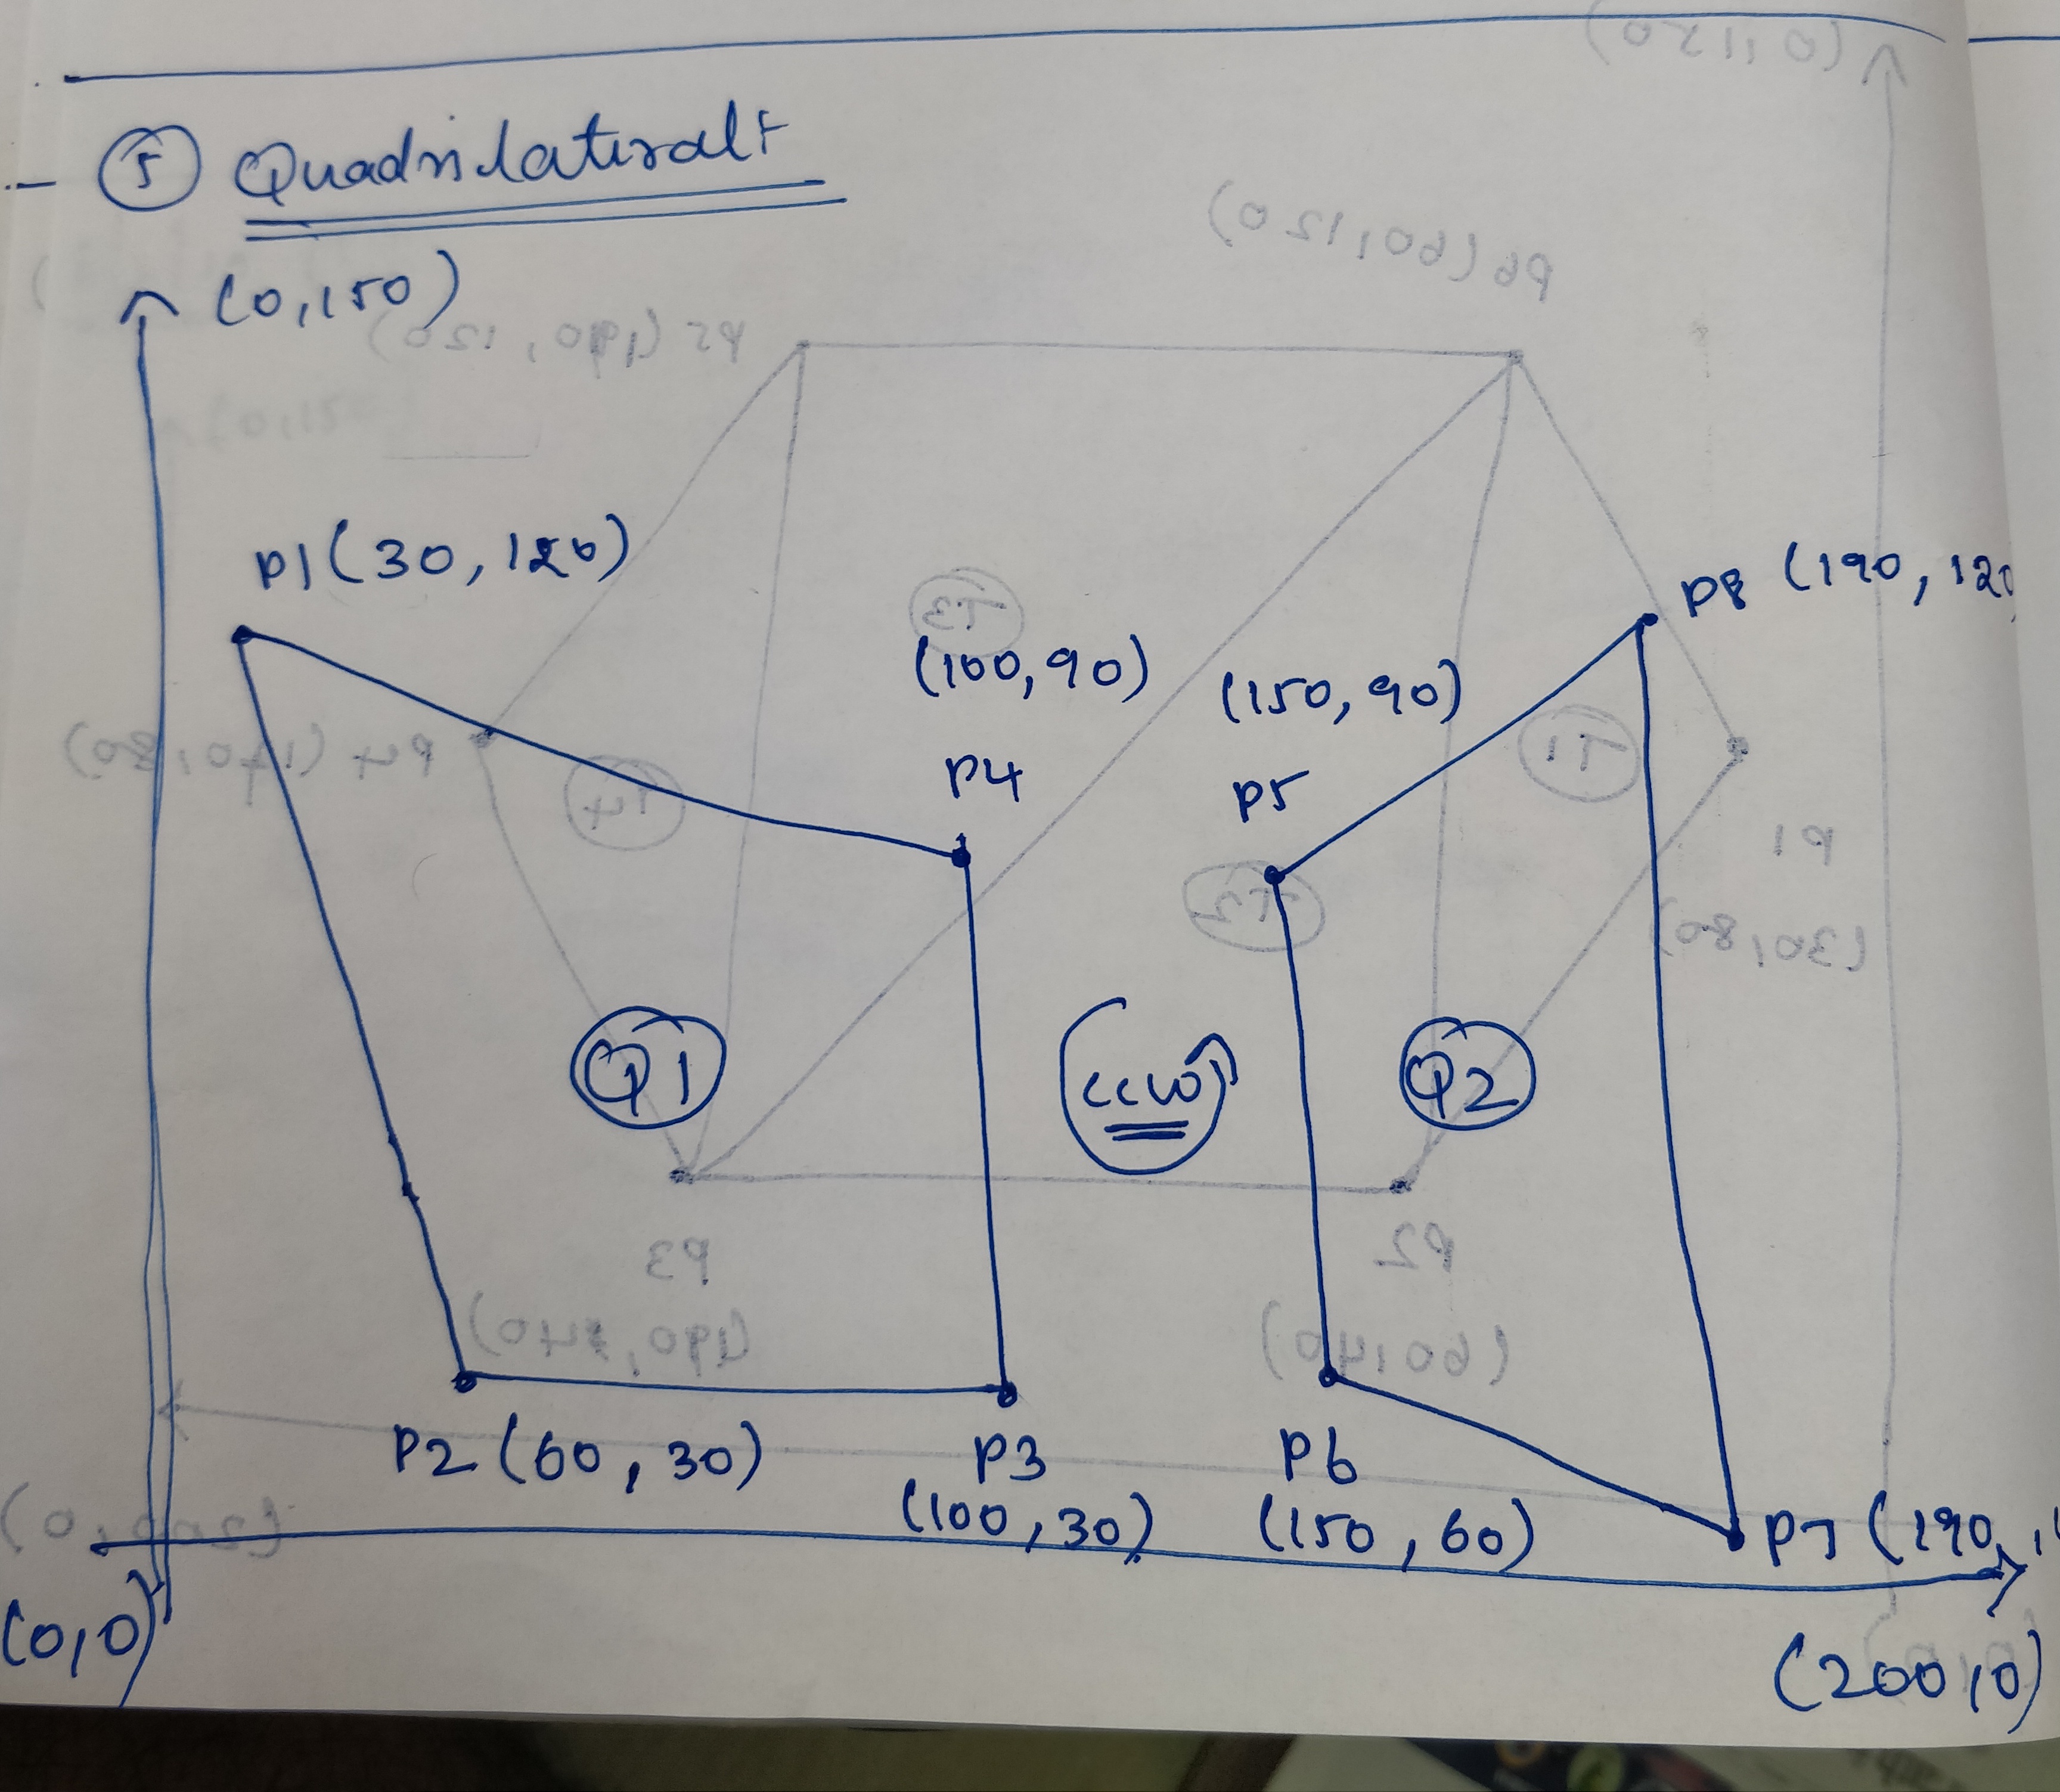 5 Quadrilateral:
(0,150)
P1(30,120)
P8 (190, 120
(100,90)
(150,90)
P4
P5
Q1
CCW
Q2
P2(60,30)
P3
(100,30)
P6
(150,60)
P7 (190,
(0,0)
(200,0)